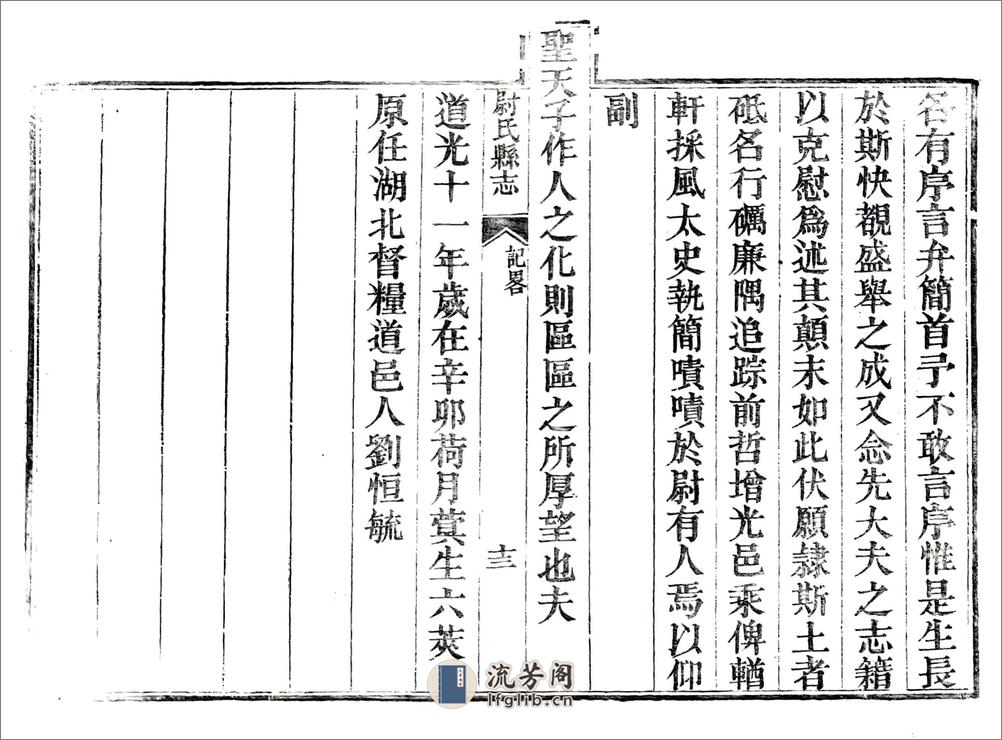 各有序言弁簡首予不敢言序惟是生長
於斯快覩盛舉之成又念先大夫之志籍
以克慰爲述其顛末如此伏願隷斯土者
砥名行礪廉隅追踪前哲增光邑乘俾輶
軒採風太史執簡嘖嘖於尉有人焉以仰
副
聖天子作人之化則區區之所厚望也夫
尉氏縣志
記畧
十三
道光十一年歲在辛卯荷月蓂生六莢
原任湖北督糧道邑人劉恒毓
流芳阁
lfglib.cn